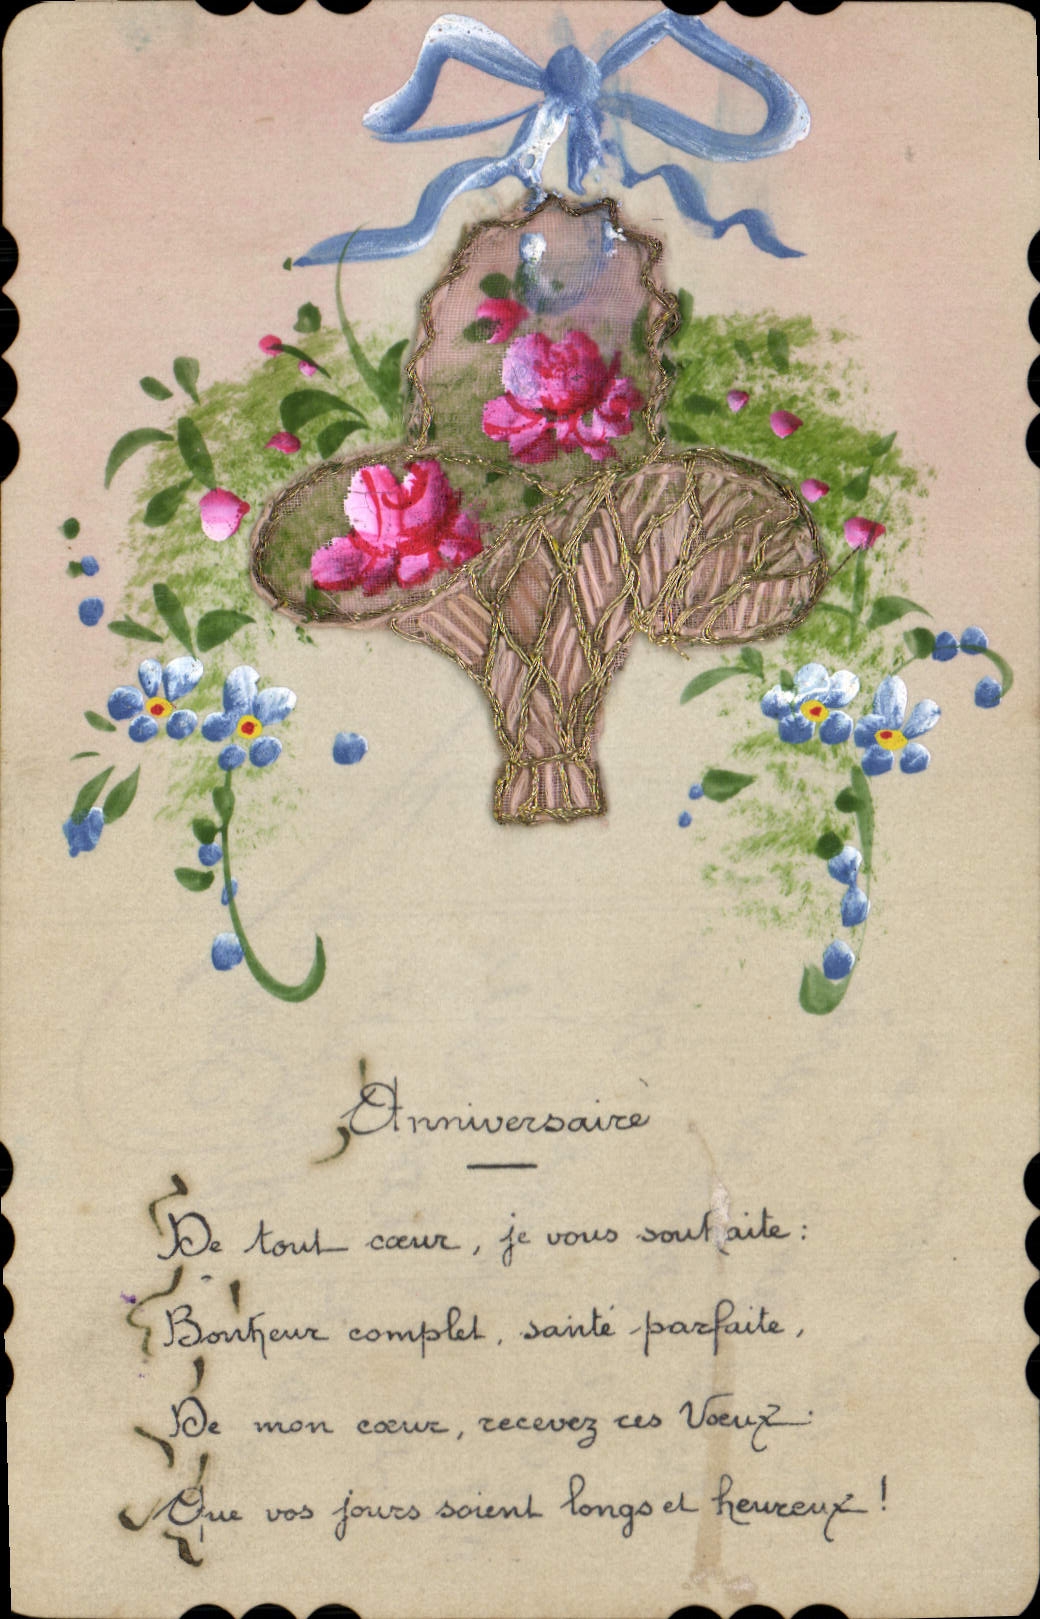 Anniversaire
De tout cœur, je vous souhaite :
Bonheur complet, santé parfaite,
De mon cœur, recevez ces Vœux :
Que vos jours soient longs et heureux !